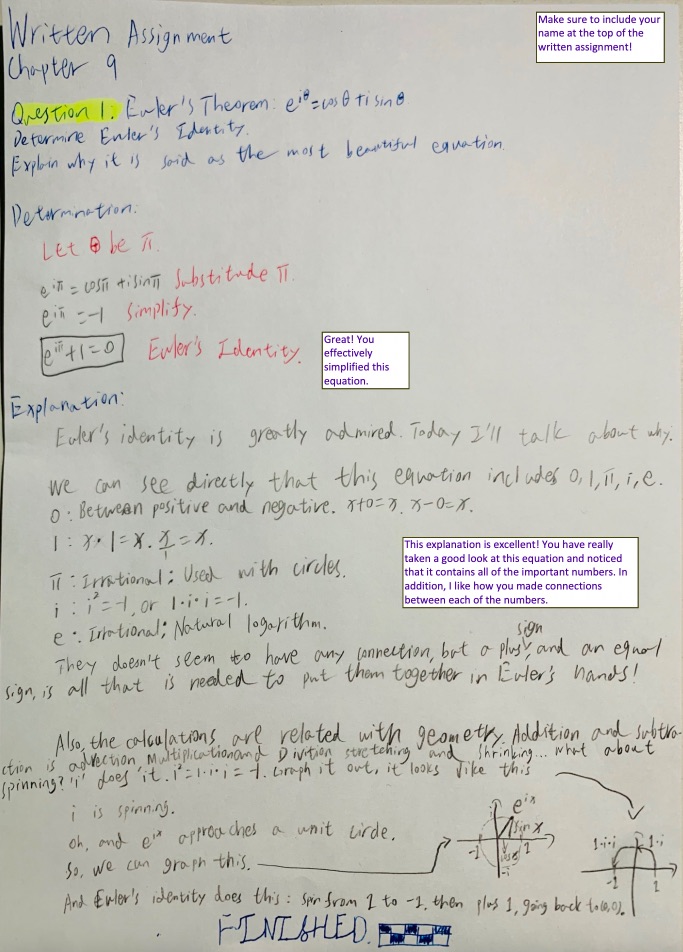 Written Assignment
Make sure to include your
name at the top of the
written assignment!
Chapter 9
Question 1: Euler's Theorem: e^iθ = cosθ + i sinθ
Determine Euler's Identity.
Explain why it is said as the most beautiful equation.
Determination:
Let θ be π.
e^iπ = cosπ + i sinπ Substitude π.
e^iπ = -1 Simplify.
e^iπ + 1 = 0 Euler's Identity.
Great! You
effectively
simplified this
equation.
Explanation:
Euler's identity is greatly admired. Today I'll talk about why.
We can see directly that this equation includes 0, 1, π, i, e.
0: Between positive and negative. x+0=x. x-0=x.
1: x·1=x. x/1=x.
π: Irrational; Used with circles.
i: i²=-1, or 1·i·i=-1.
e: Irrational; Natural logarithm.
This explanation is excellent! You have really
taken a good look at this equation and noticed
that it contains all of the important numbers. In
addition, I like how you made connections
between each of the numbers.
They doesn't seem to have any connection, but a plus sign, and an equal
sign, is all that is needed to put them together in Euler's hands!
Also, the calculations are related with geometry. Addition and subtra-
ction is a direction, Multiplication and Divition stretching and shrinking... what about
spinning? 'i' does it. i²=1·i·i=-1. Graph it out, it looks like this
i is spinning.
oh, and e^ix approaches a unit circle.
So, we can graph this.
e^ix
sin x
-1 1
-i
1·i·i 1·i
-1 1
And Euler's identity does this: spin from 1 to -1, then plus 1, going back to (0,0).
FINISHED.